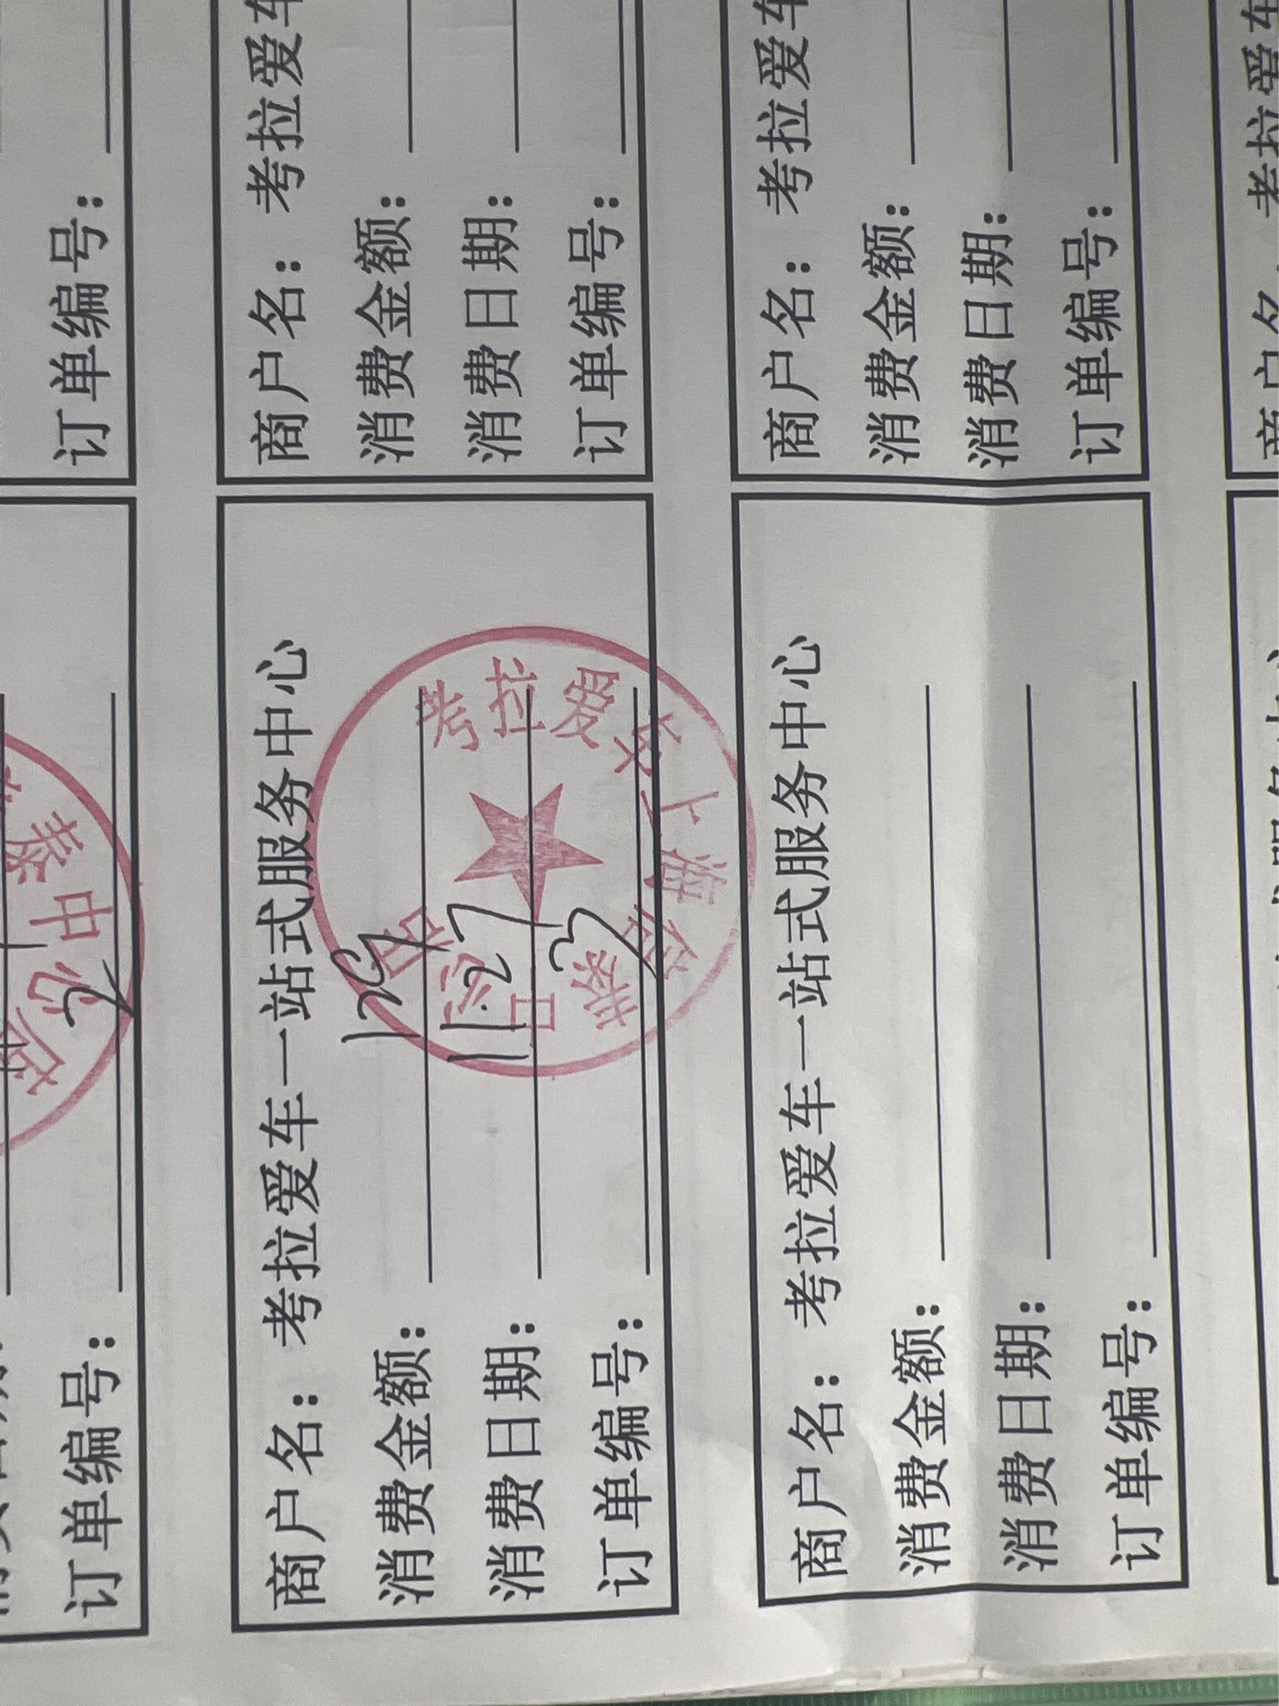 订单编号： 2
泰中心店
订单编号：
商户名： 考拉爱车一站式服务中心
消费金额： 129
消费日期： 11.27
订单编号： 3
考拉爱车上海金泰中心店
商户名： 考拉爱车
消费金额：
消费日期：
订单编号：
商户名： 考拉爱车一站式服务中心
消费金额：
消费日期：
订单编号：
商户名： 考拉爱车
消费金额：
消费日期：
订单编号：
商户名 考拉爱